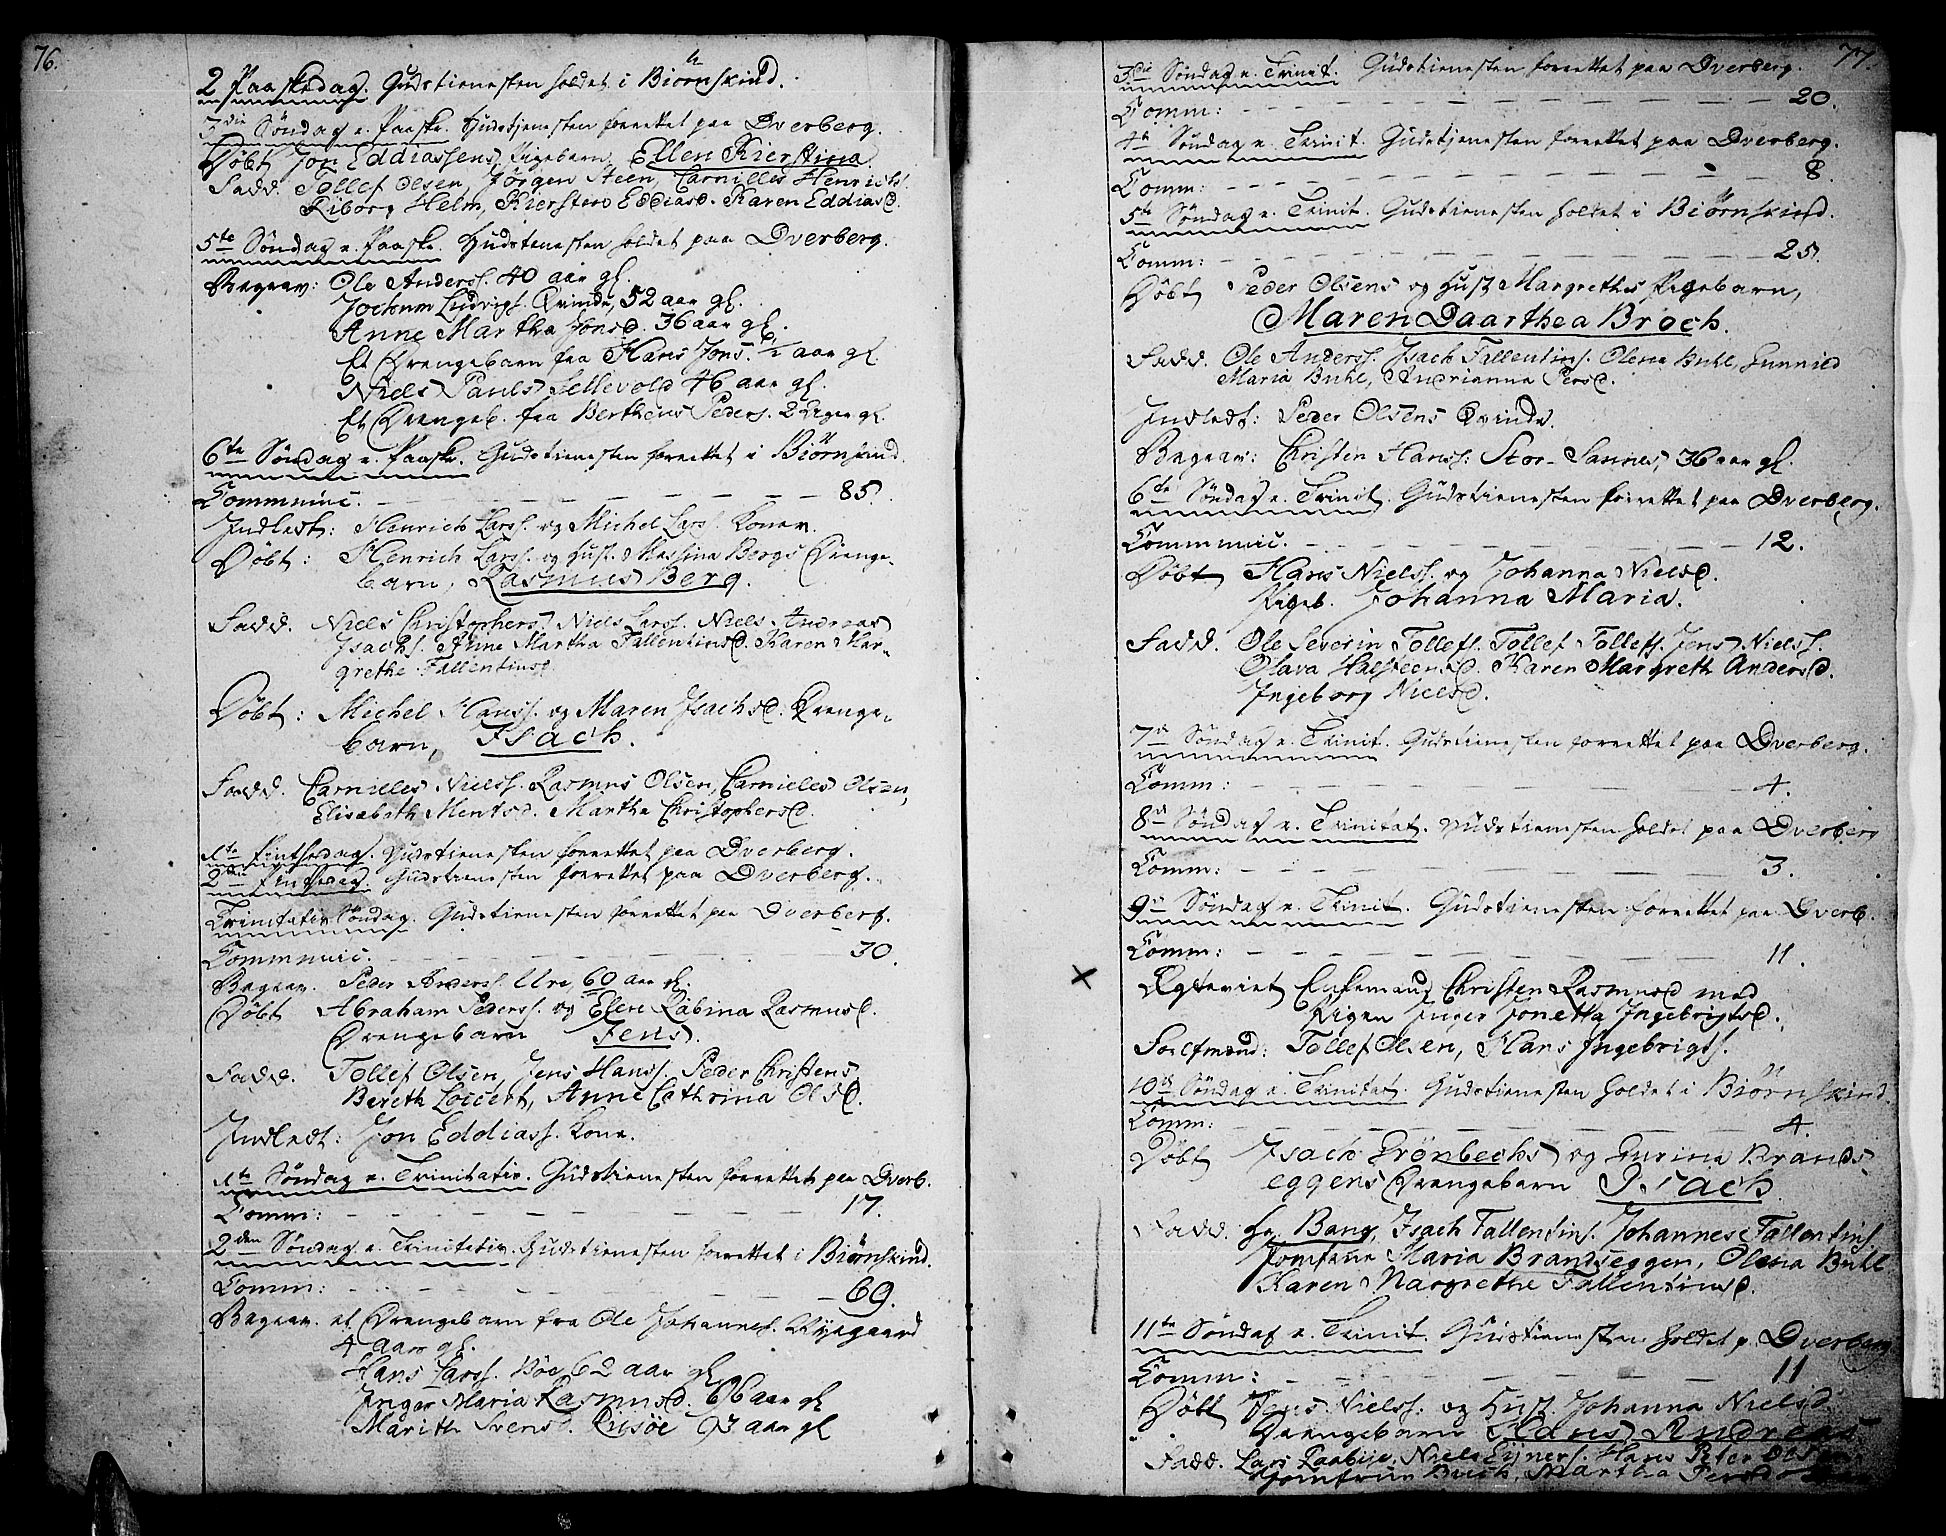 76.
2 Paaskedag. Gudstienesten holdet i Biørnskind.
3die Søndag e. Paaske. Gudstjenesten forrettet paa Dverberg.
Døbt Jon Eddiassens Pigebarn, Ellen Kierstina.
Fadd. Tollef Olsen, Jørgen Steen, Carnilles Henrichs.
Riborg Helm, Kiersten Eddiasd. Karen Eddiasd.
5te Søndag e. Paaske. Gudstienesten holdet paa Dverberg.
Begrav: Ole Anderss. 40 aar gl.
Jochum Ludvigs. Qvinde, 52 aar gl.
Anne Martha Jonsd. 36 aar gl.
Et Drengebarn fra Hans Jons. 1/2 aar gl.
Niels Pauls Sellevold 46 aar gl.
Et Drengeb. fra Berthens Peders. 2 Uger gl.
6te Søndag e. Paaske. Gudstienesten forrettet i Biørnskind.
Communic. 85.
Indledt: Henrich Larss. og Michel Larss. Koner.
Døbt: Henrich Larss. og Hust. Messina Bergs Drenge-
barn, Rasmus Berg.
Fadd. Niels Christophers, Niels Larss. Niels Andreas
Isachs. Anne Martha Fallentinsd. Karen Mar-
grethe Fallentinsd.
Døbt: Michel Hanss. og Maren Isachsd. Drenge-
barn, Isach.
Fadd. Carnilles Nielss. Rasmus Olsen, Carnieles Olsen,
Elisabeth Mentsd. Martha Christophersd.
1te Pintsedag. Gudstienesten forrettet paa Dverberg.
2den Pintsedag. Gudstienesten forrettet paa Dverberg.
Trinitatis Søndag. Gudstienesten forrettet paa Dverberg.
Communic. 30.
Begrav. Peder Anderss. Ure, 60 aar gl.
Døbt Abraham Pederss. og Ellen Rabina Rasmusd.
Drengebarn Jens.
Fadd. Tollef Olsen, Jens Hanss. Peder Christens.
Bereth Loccert, Anne Cathrina Olsd.
Indledt: Jon Eddiass. Kone.
1te Søndag e. Trinitatis. Gudstienesten forrettet paa Dverb.
Comm: 17.
2den Søndag e. Trinitatis. Gudstienesten forrettet i Biørnskind.
Comm: 69.
Begrav. et Drengebarn fra Ole Johannes. Nygaard
4 aar gl.
Hans Larss. Bøe 62 aar gl
Inger Maria Rasmusd. 66 aar gl
Marith Svensd. Ersøe 93 aar gl
77.
3die Søndag e. Trinit. Gudstienesten forrettet paa Dverberg.
Comm: 20.
4de Søndag e. Trinit. Gudstjenesten forrettet paa Dverberg.
Comm: 8.
5te Søndag e. Trinit. Gudstienesten holdet i Biørnskind.
Comm: 25.
Døbt Peder Olsens og Hust. Margrethes Pigebarn,
Maren Daarthea Broch.
Fadd. Ole Anderss. Isach Fallentins. Olena Buhl, Gunnild
Maria Buhl, Andrianna Persd.
Indledt: Peder Olsens Qvinde.
Begrav: Christen Hanss: Stor-Sannes, 36 aar gl.
6te Søndag e. Trinit. Gudstienesten forrettet paa Dverberg.
Communic. 12.
Døbt Hans Nielss. og Johanna Nielsd.
Pigeb. Johanna Maria.
Fadd. Ole Severin Tollefs. Tollef Tollefs. Jens Nielss.
Olava Halsteensd. Karen Margreth Andersd.
Ingeborg Nielsd.
7de Søndag e. Trinit. Gudstienesten forrettet paa Dverberg.
Comm: 4.
8de Søndag e. Trinitat. Gudstienesten holdet paa Dverberg
Comm: 3.
9de Søndag e. Trinit. Gudstienesten forrettet paa Dverb.
Comm: 11.
Ægteviet Enkemand Christen Rasmusd med
Pigen Inger Jonetta Ingebrigtsd.
Forlofmænd: Tollef Olsen, Hans Ingebrigts.
10de Søndag e. Trinitat. Gudstienesten holdet i Biørnskind.
Comm: 4.
Døbt Isach Grønbechs og Gurina Brands-
eggens Drengebarn Isach.
Fadd. Hr Bang, Isach Fallentins. Johannes Fallentins.
Jomfrue Maria Brandseggen, Olena Buhl
Karen Margrethe Fallentinsd.
11te Søndag e. Trinit. Gudstienesten holdet p. Dverberg
Comm: 11
Døbt Jens Nielss. og Hust. Johanna Nielsd
Drengebarn Hans Andreas
Fadd. Lars Niels Hans Peter Olsen
Jomfrue Martha